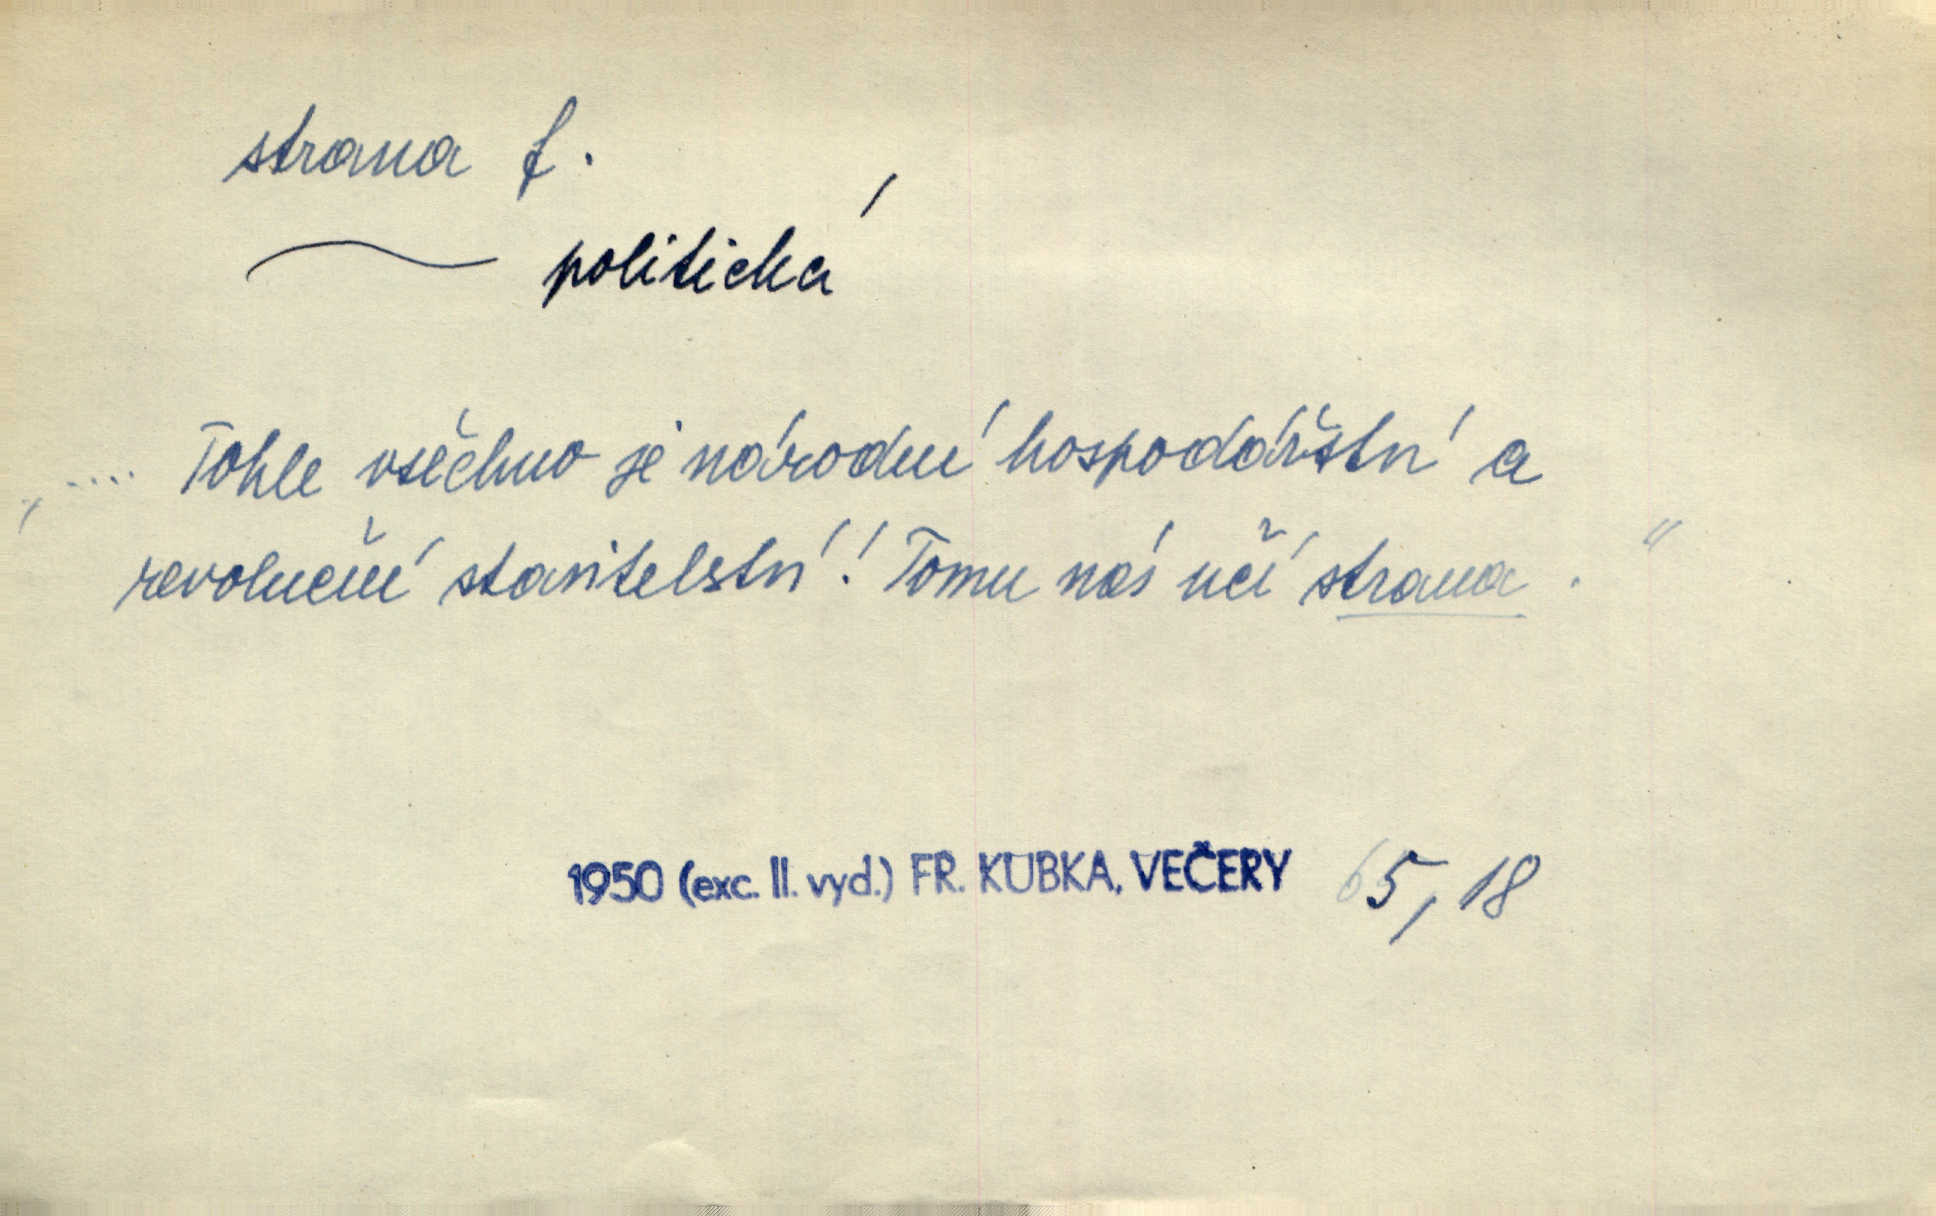 strana f.
~ politická
„.... Tohle všechno je národní hospodářství a
revoluční stavitelství! Tomu nás učí strana."
1950 (exc. II. vyd.) FR. KUBKA, VEČERY 65, 18